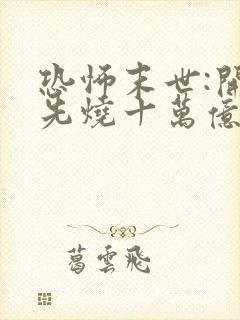 恐怖末世:開
先燒十萬億
葛雲飛